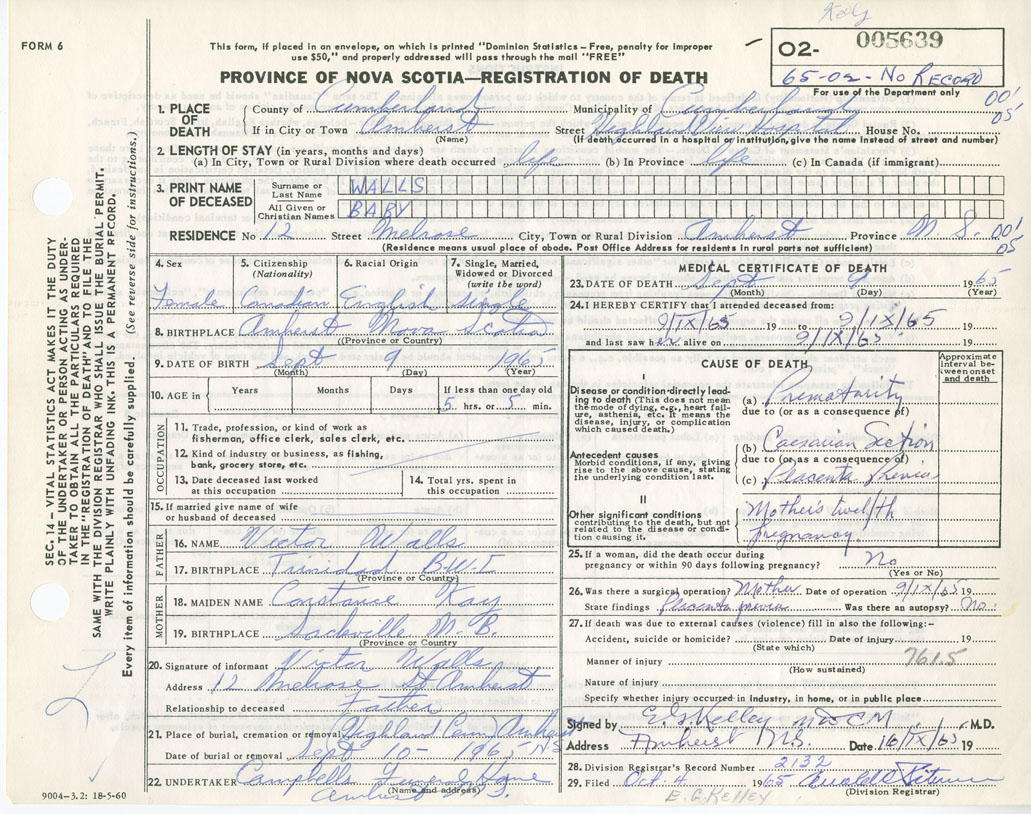 Kelly
FORM 6
This form, if placed in an envelope, on which is printed "Dominion Statistics – Free, penalty for improper
use $50," and properly addressed will pass through the mail "FREE"
O2- 005639
65-02- No RECORD
PROVINCE OF NOVA SCOTIA—REGISTRATION OF DEATH
For use of the Department only
001
05
1. PLACE OF DEATH
County of Cumberland Municipality of Cumberland
If in City or Town Amherst Street Highland View Hospital House No.
(Name) (If death occurred in a hospital or institution, give the name instead of street and number)
2. LENGTH OF STAY (in years, months and days)
(a) In City, Town or Rural Division where death occurred life (b) In Province life (c) In Canada (if immigrant)
3. PRINT NAME OF DECEASED
Surname or Last Name WALLS
All Given or Christian Names BABY
RESIDENCE No 12 Street Melrose City, Town or Rural Division Amherst Province N. S. 001
05
(Residence means usual place of abode. Post Office Address for residents in rural parts not sufficient)
4. Sex 5. Citizenship (Nationality) 6. Racial Origin 7. Single, Married, Widowed or Divorced (write the word)
Female Canadian English Single
8. BIRTHPLACE Amherst Nova Scotia
(Province or Country)
9. DATE OF BIRTH Sept 9 1965
(Month) (Day) (Year)
10. AGE in Years Months Days If less than one day old
5 hrs. or 5 min.
OCCUPATION
11. Trade, profession, or kind of work as
fisherman, office clerk, sales clerk, etc.
12. Kind of industry or business, as fishing,
bank, grocery store, etc.
13. Date deceased last worked
at this occupation
14. Total yrs. spent in
this occupation
15. If married give name of wife
or husband of deceased
FATHER
16. NAME Victor Walls
17. BIRTHPLACE Trinidad B.W.I
(Province or Country)
MOTHER
18. MAIDEN NAME Constance Kay
19. BIRTHPLACE Sackville N. B.
(Province or Country)
20. Signature of informant Victor Walls
Address 12 Melrose St Amherst
Relationship to deceased Father
21. Place of burial, cremation or removal Highland Cem Amherst
Date of burial or removal Sept 10 - 1965 NS
22. UNDERTAKER Campbells Funeral Home
(Name and address)
Amherst N.S.
9004-3.2: 18-5-60
MEDICAL CERTIFICATE OF DEATH
23. DATE OF DEATH Sept 9 1965
(Month) (Day) (Year)
24. I HEREBY CERTIFY that I attended deceased from:
9/IX/65 19 to 9/IX/65 19
and last saw her alive on 9/IX/65 19
CAUSE OF DEATH
Approximate interval between onset and death
I
Disease or condition directly leading to death (This does not mean the mode of dying, e.g., heart failure, asthenia, etc. It means the disease, injury, or complication which caused death.)
(a) Prematurity
due to (or as a consequence of)
Antecedent causes
Morbid conditions, if any, giving rise to the above cause, stating the underlying condition last.
(b) Caesarian Section
due to (or as a consequence of)
(c) Placenta Previa
II
Other significant conditions
contributing to the death, but not related to the disease or condition causing it.
Mother's twelfth
pregnancy.
25. If a woman, did the death occur during
pregnancy or within 90 days following pregnancy? No
(Yes or No)
26. Was there a surgical operation? Mother Date of operation 9/IX/65 19
State findings Placenta previa Was there an autopsy? No.
27. If death was due to external causes (violence) fill in also the following:–
Accident, suicide or homicide? Date of injury 19
(State which)
Manner of injury 761.5
(How sustained)
Nature of injury
Specify whether injury occurred in industry, in home, or in public place
Signed by E. G. Kelley MDCM M.D.
Address Amherst N.S. Date 16/IX/65 19
28. Division Registrar's Record Number 2132
29. Filed Oct. 4 1965
(Division Registrar)
E. G. Kelley
SEC. 14 – VITAL STATISTICS ACT MAKES IT THE DUTY
OF THE UNDERTAKER OR PERSON ACTING AS UNDER-
TAKER TO OBTAIN ALL THE PARTICULARS REQUIRED
IN THE "REGISTRATION OF DEATH" AND TO FILE THE
SAME WITH THE DIVISION REGISTRAR WHO SHALL ISSUE THE BURIAL PERMIT.
WRITE PLAINLY WITH UNFADING INK. THIS IS A PERMANENT RECORD.
Every item of information should be carefully supplied. (See reverse side for instructions.)